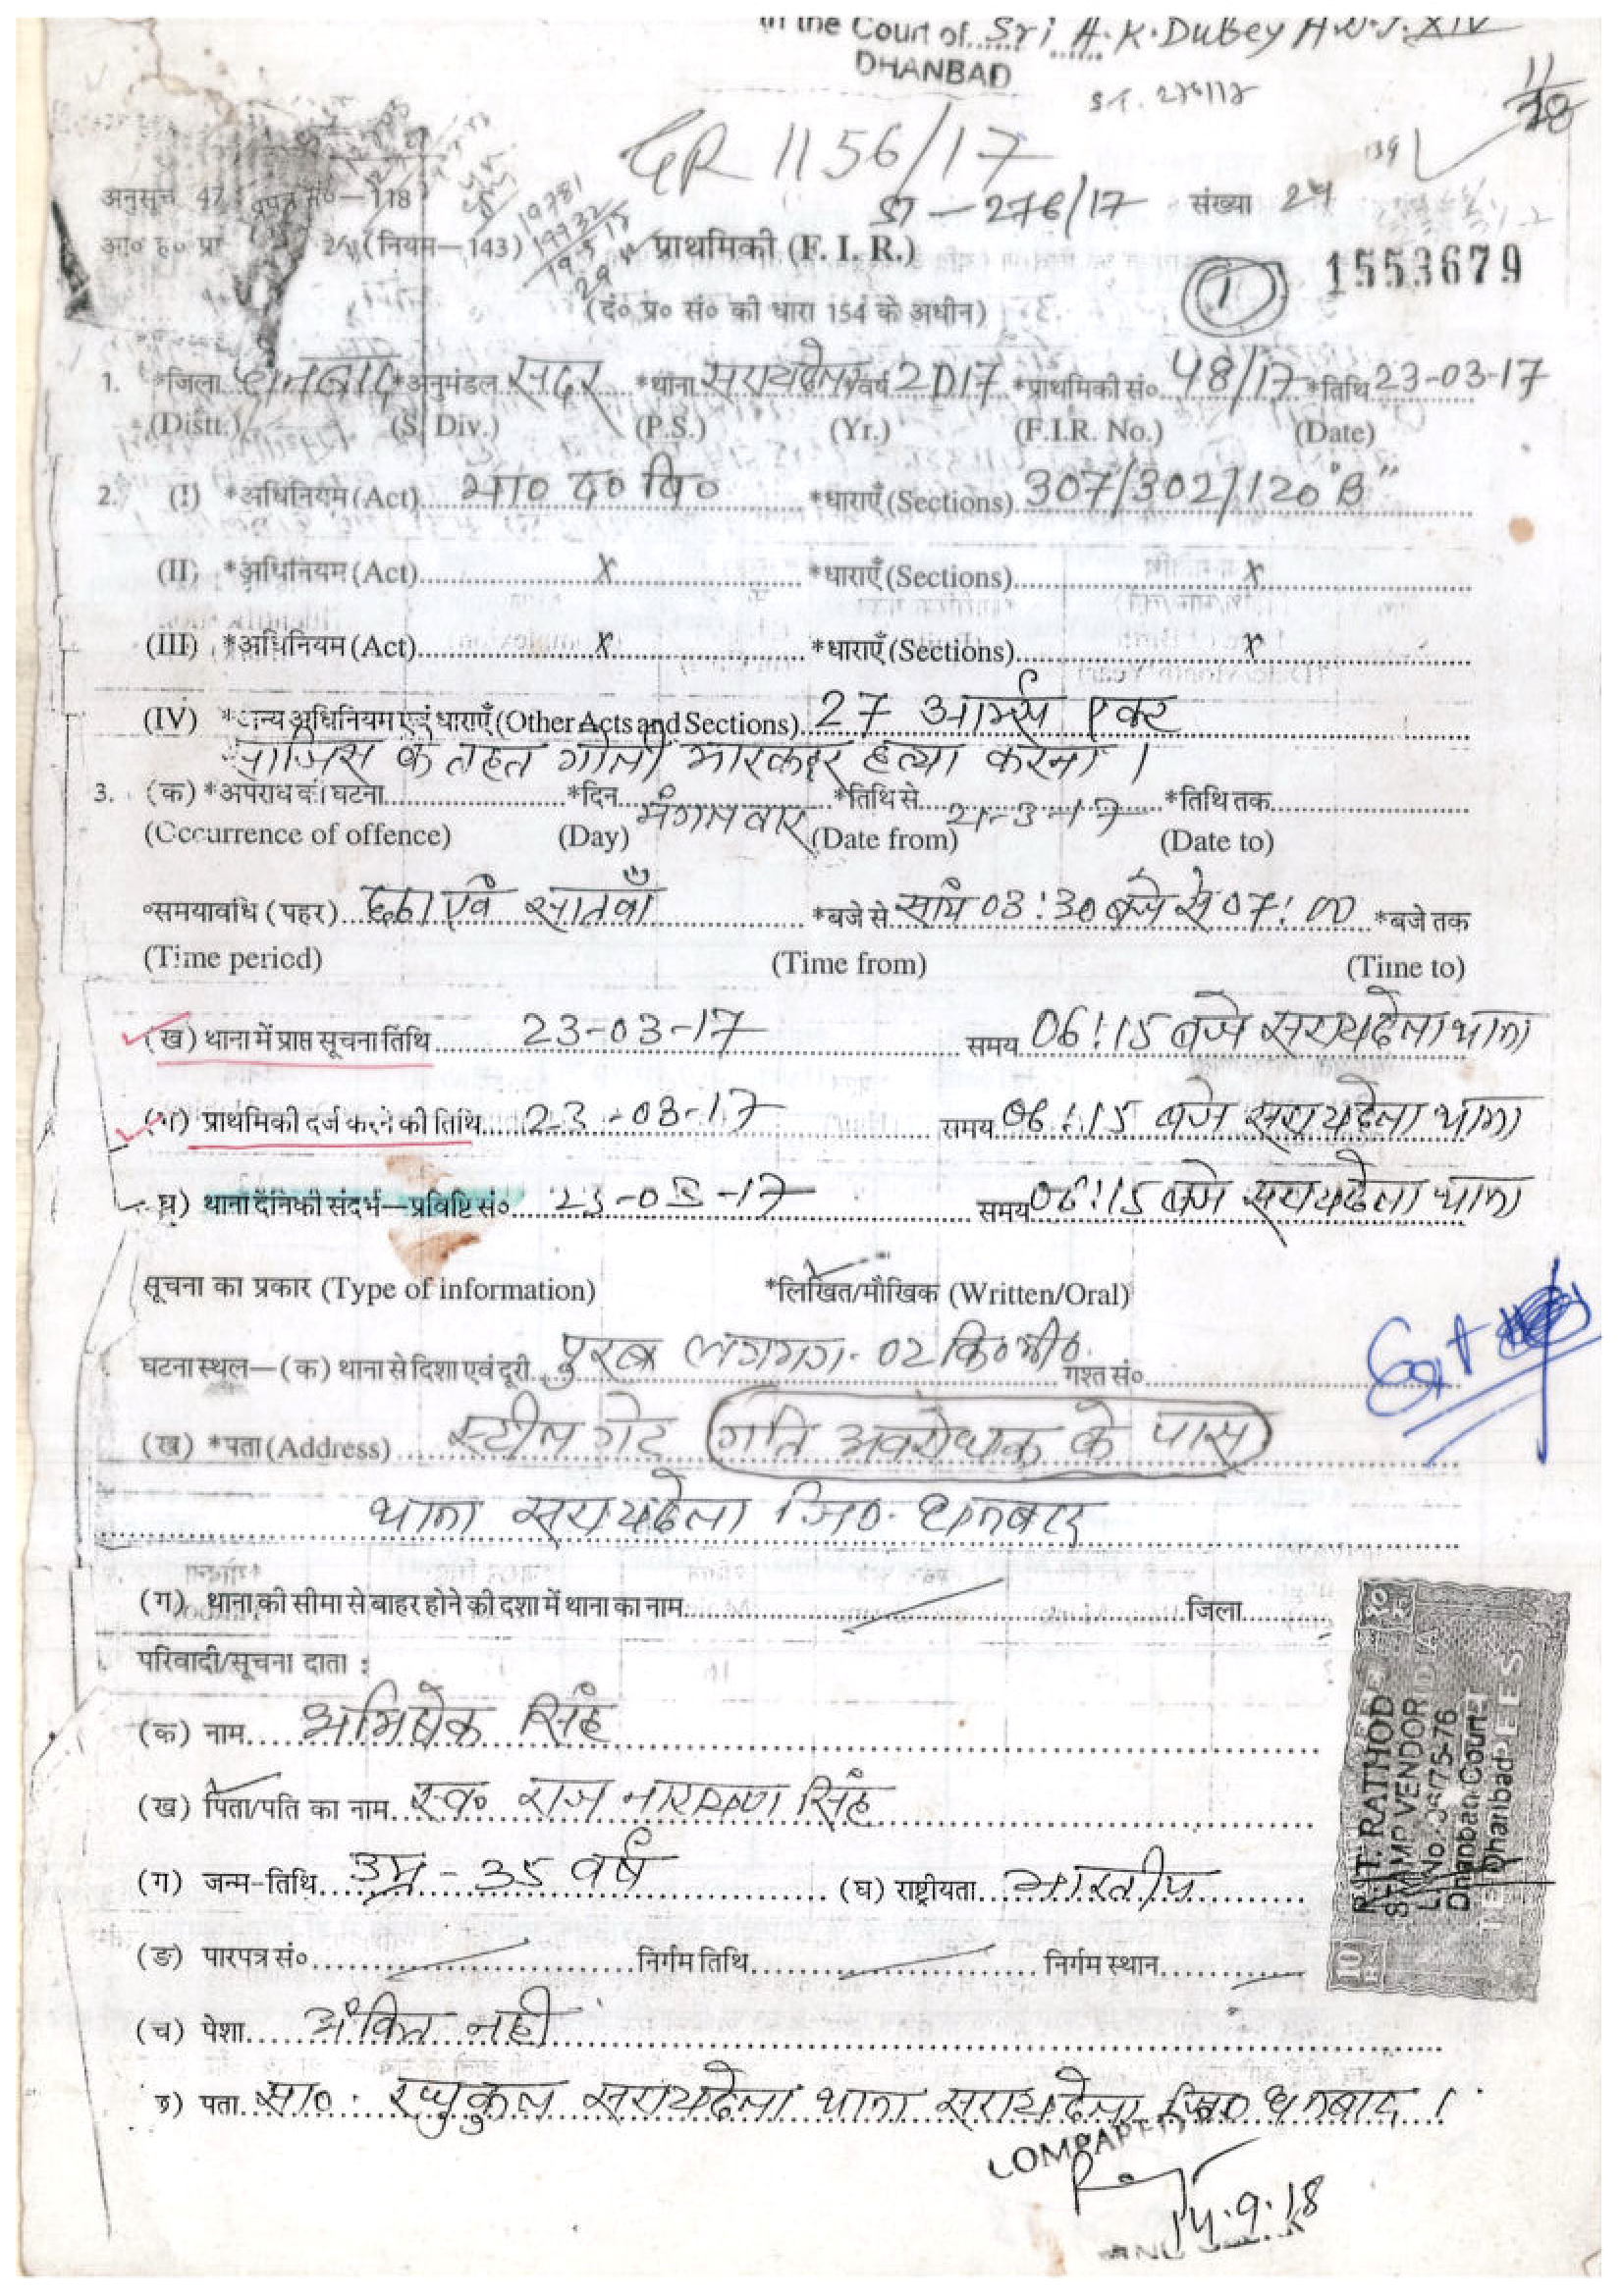 in the Court of Sri A.K. Dubey
DHANBAD
GR 1156/17
ST-276/17 संख्या 24
अनुसूच 47 प्रपत्र सं०—118
(नियम—143) प्राथमिकी (F. I. R.)
1553679
1
(दं० प्र० सं० की धारा 154 के अधीन)
1. *जिला धनबाद *अनुमंडल सदर *थाना सरायढेला वर्ष 2017 *प्राथमिकी सं० 48/17 *तिथि 23-03-17
(Distt.) (S. Div.) (P.S.) (Yr.) (F.I.R. No.) (Date)
2. (I) *अधिनियम (Act) भा० द० वि० *धाराएँ (Sections) 307/302/120"B"
(II) *अधिनियम (Act) x *धाराएँ (Sections) x
(III) *अधिनियम (Act) x *धाराएँ (Sections) x
(IV) *अन्य अधिनियम एवं धाराएँ (Other Acts and Sections) 27 आर्म्स एक्ट
साजिस के तहत गोली मारकर हत्या करना।
3. (क) *अपराध की घटना *दिन मंगलवार *तिथि से 21-3-17 *तिथि तक
(Occurrence of offence) (Day) (Date from) (Date to)
*समयावधि (पहर) छठा एवं सातवाँ *बजे से सायं 03:30 बजे से 07:00 *बजे तक
(Time period) (Time from) (Time to)
(ख) थाना में प्राप्त सूचना तिथि 23-03-17 समय 06:15 बजे सरायढेला थाना
(ग) प्राथमिकी दर्ज करने की तिथि 23-03-17 समय 06:15 बजे सरायढेला थाना
(घ) थाना दैनिकी संदर्भ—प्रविष्टि सं० 23-03-17 समय 06:15 बजे सरायढेला थाना
सूचना का प्रकार (Type of information) *लिखित/मौखिक (Written/Oral)
घटना स्थल—(क) थाना से दिशा एवं दूरी पुरब लगभग-02 कि०मी० गश्त सं०
(ख) *पता (Address) स्टील गेट गति अवरोधक के पास
थाना सरायढेला जि०-धनबाद
(ग) थाना की सीमा से बाहर होने की दशा में थाना का नाम जिला
परिवादी/सूचना दाता :
(क) नाम अभिषेक सिंह
(ख) पिता/पति का नाम स्व० राज नारायण सिंह
(ग) जन्म-तिथि उम्र - 35 वर्ष (घ) राष्ट्रीयता भारतीय
(ङ) पारपत्र सं० निर्गम तिथि निर्गम स्थान
(च) पेशा अंकित नहीं
पता सा०. रघुकुल सरायढेला थाना सरायढेला जि० धनबाद।
RATHOD
STAMP VENDOR
Dhanbad Court
Dhanbad
14.9.18